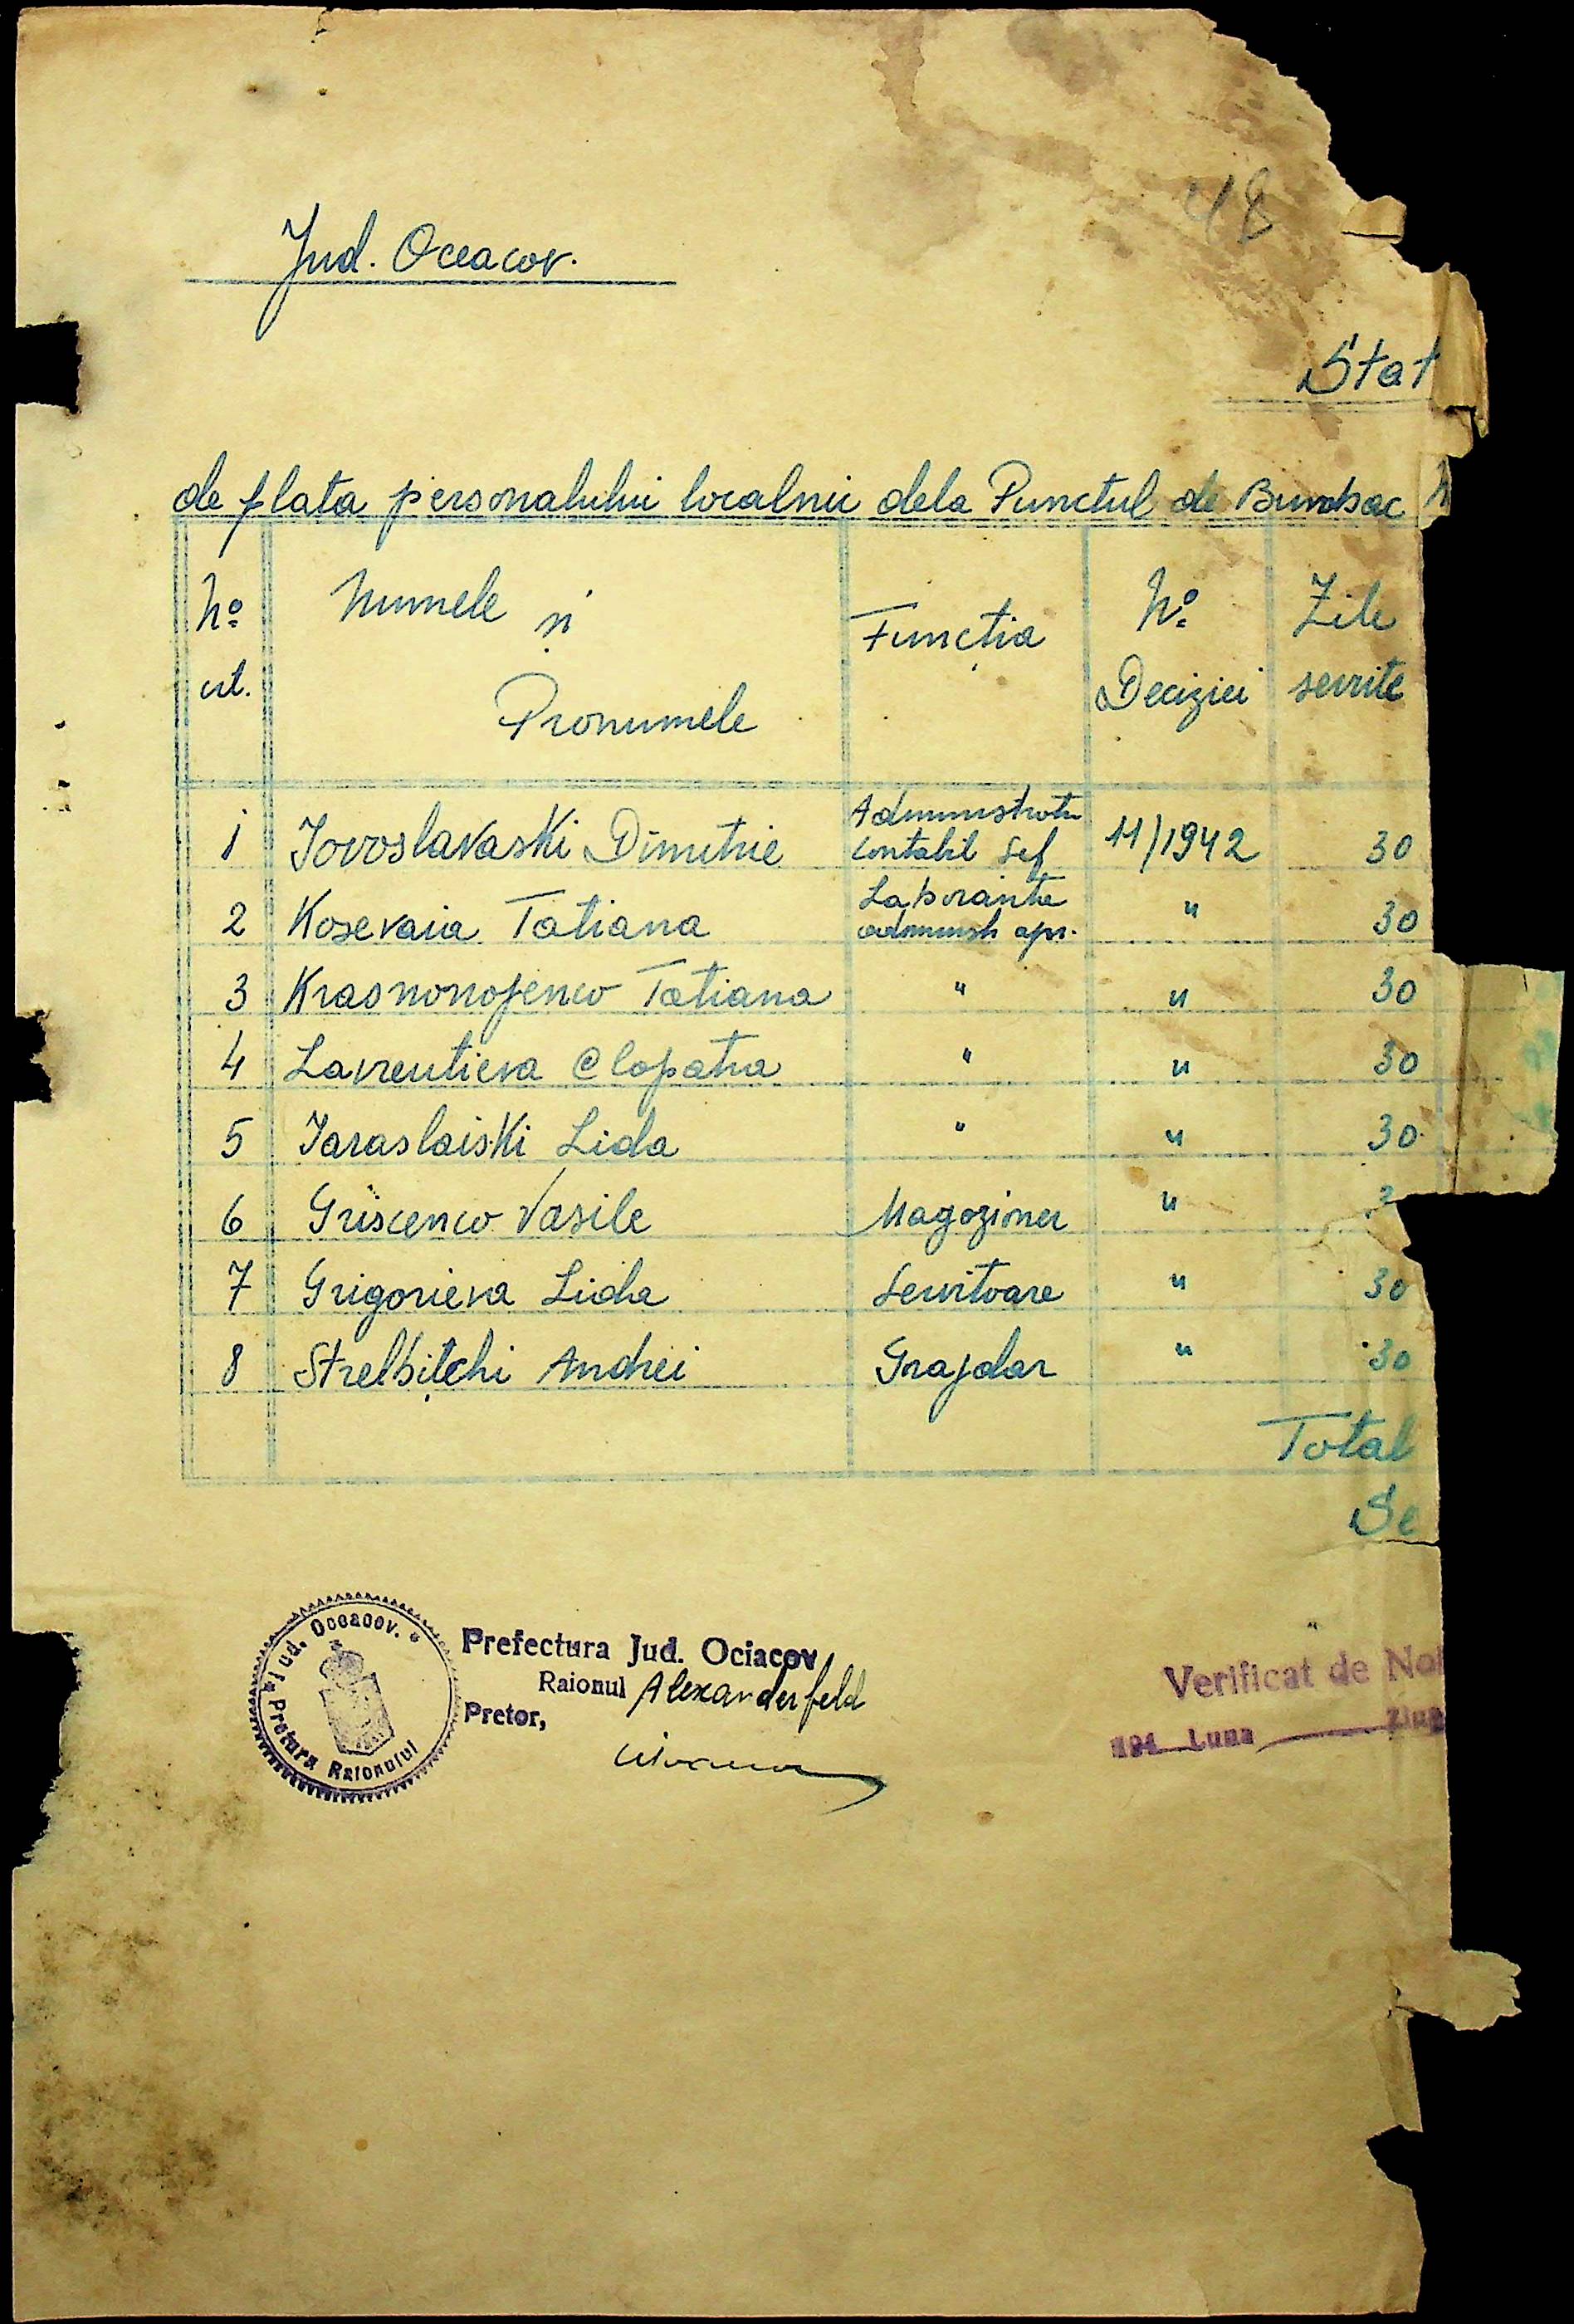 48
Jud. Oceacov.
Stat
de plata personalului localnic dela Punctul de Bumbac
No crt. Numele și Pronumele Funcția No Deciziei Zile servite
1 Iovoslavaski Dimitrie Administrator contabil șef 11/1942 30
2 Kosevaia Tatiana Laborantă administr apr. " 30
3 Krasnonojenco Tatiana " " 30
4 Lavrentieva Clopatra " " 30
5 Iaraslaiski Lida " " 30
6 Griscenco Vasile Magaziner "
7 Grigorieva Lida Servitoare " 30
8 Strelbițchi Andrei Grajdar " 30
Total
Se
Jud. Oceacov. * Pretura Raionului
Prefectura Jud. Ociacov
Raionul Alexanderfeld
Pretor,
Verificat de Noi
194 Luna Ziua